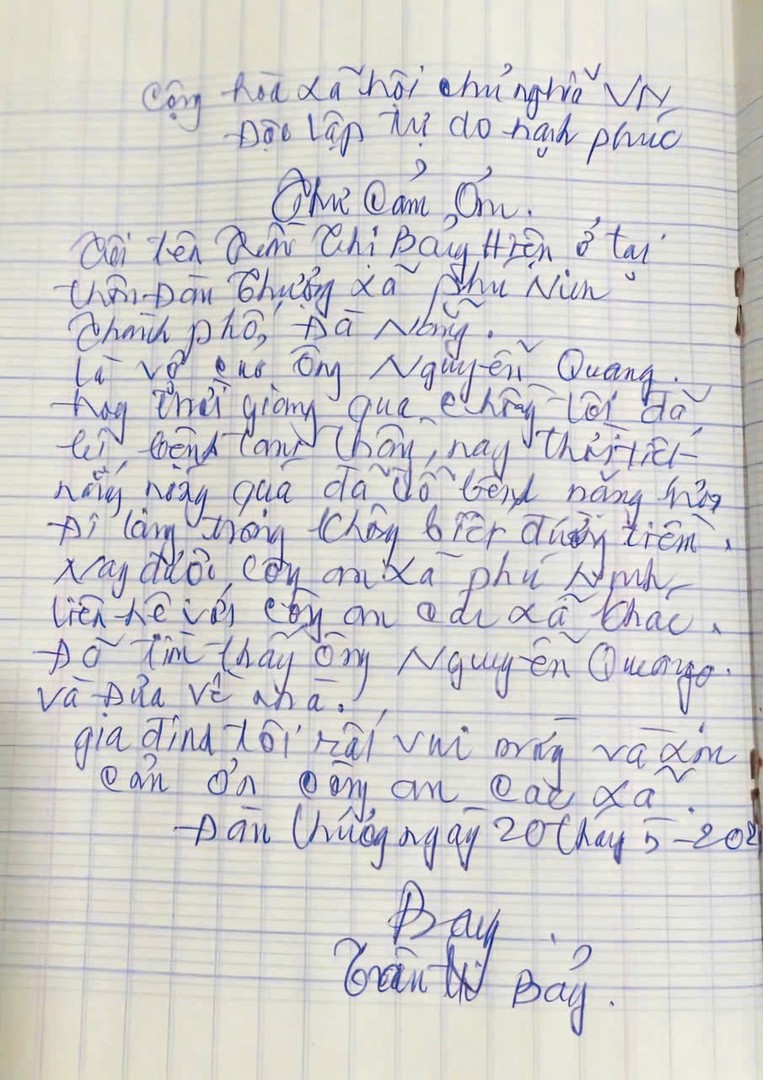 Cộng hòa xã hội chủ nghĩã VN
Độc lập tự do hạnh phúc
Thư Cảm Ơn.
Tôi tên Thị Bảy Hiện ở tại
thôn Đàn Thượng xã phú Ninh
Thành phố, Đà Nẵng.
là vợ của ông Nguyễn Quang.
thời giang qua chồng tôi đã
bị bệnh tâm thần, nay thời tiết
nắng nóng quá đã đổ bệnh nặng hơn
Đi lang thang không biết đường tiềm.
Nay được công an xã phú Ninh
liên hê với công an các xã khác.
Đã tìm thấy ông Nguyễn Quang.
và Đưa về nhà.
gia đình tôi rất vui mừng và xin
cản ơn công an các xã.
Đàn thượng ngày 20 tháy 5-202
Bay
Trần thị Bảy.